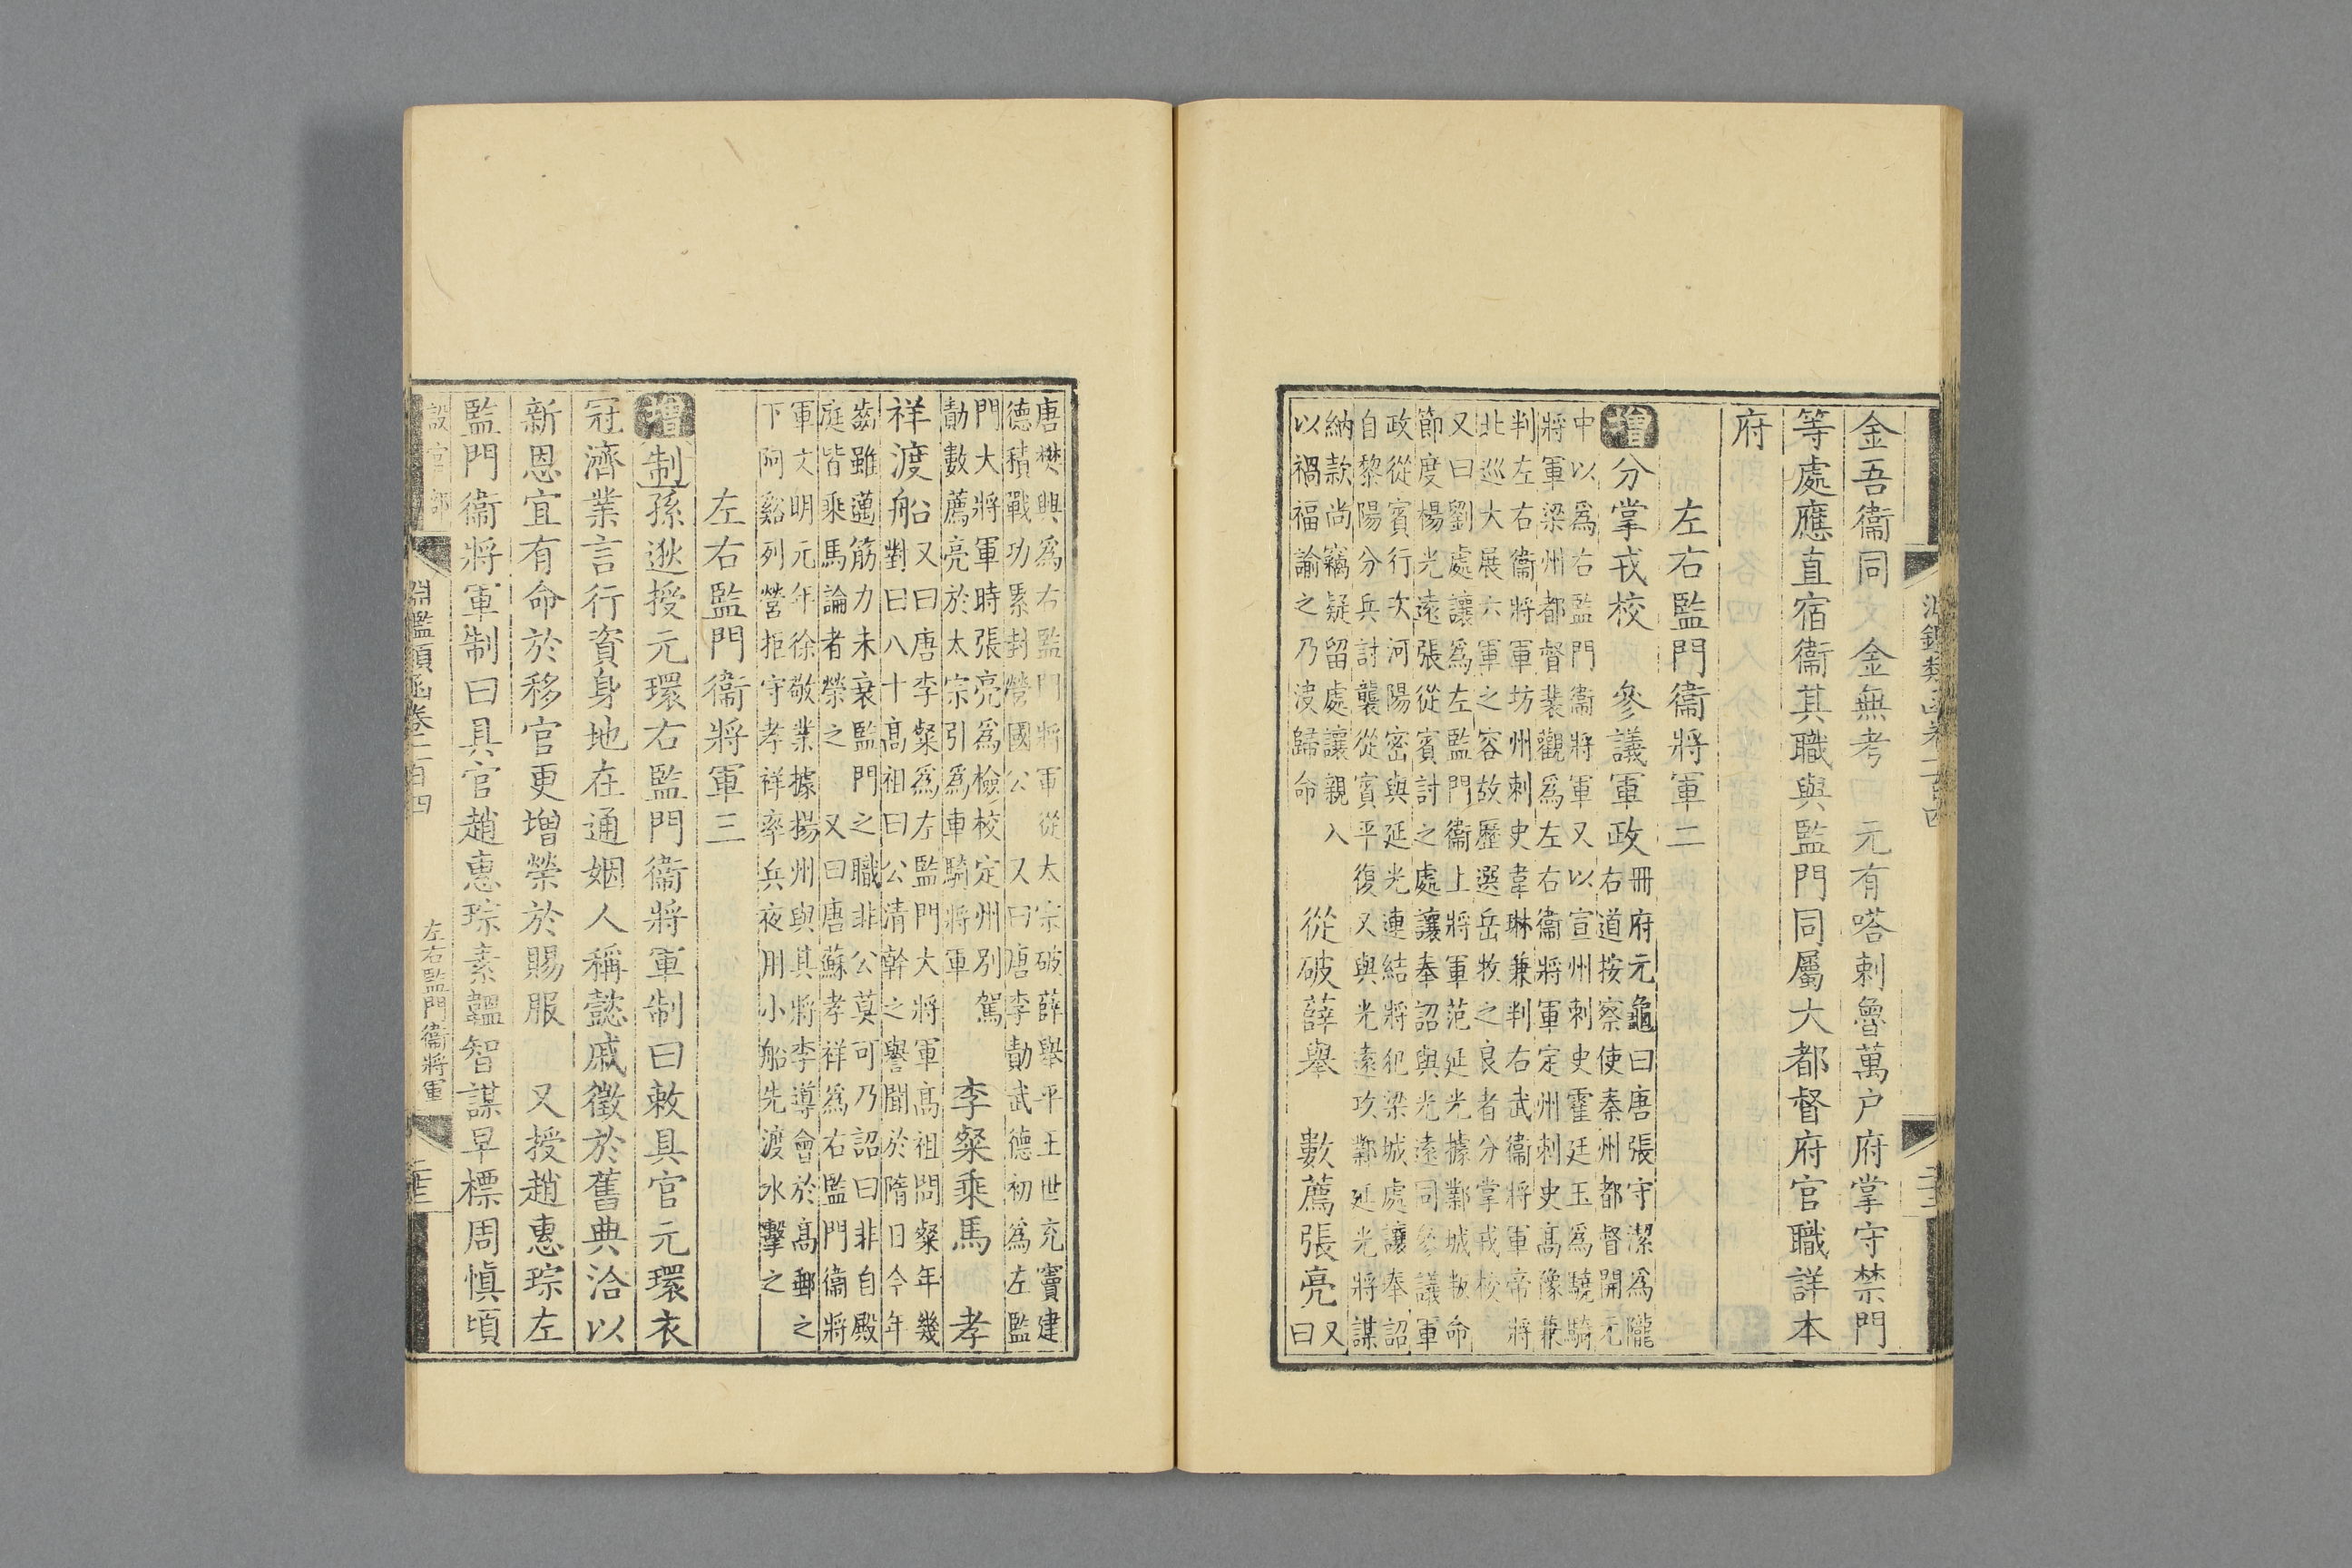 金吾衞同　金無考　元有嗒剌魯萬户府掌守禁門
等處應直宿衞其職與監門同屬大都督府官職詳本
府
左右監門衞將軍二
增分掌戎校　參議軍政冊府元龜曰唐張守潔爲隴
右道按察使秦州都督開元
中以爲右監門衞將軍又以宣州刺史霍廷玉爲驍騎
將軍梁州都督裴觀爲左右衞將軍定州刺史高豫兼
判左右衞將軍坊州刺史韋琳兼判右武衞將軍帝將
北巡大展六軍之容故歷選岳牧之良者分掌戎校
又曰劉處讓爲左監門衞上將軍范延光據鄴城叛命
節度楊光遠張從賓討之處讓奉詔與光遠同參議軍
政從賓行次河陽密與延光連結將犯梁城處讓奉詔
自黎陽分兵討襲從賓平復又與光遠攻鄴延光將謀
納款尚竊疑留處讓親入
以禍福諭之乃淒歸命　從破薛舉　數薦張亮又
曰
唐樊興爲右監門將軍從太宗破薛舉平王世充竇建
德積戰功累封營國公　又曰唐李勣武德初爲左監
門大將軍時張亮爲檢校定州別駕
勣數薦亮於太宗引爲車騎將軍　李粲乘馬　孝
祥渡船又曰唐李粲爲左監門大將軍高祖問粲年幾
對曰八十高祖曰公清幹之譽聞於隋日今年
齒雖邁筋力未衰監門之職非公莫可乃詔曰非自殿
庭皆乘馬論者榮之　又曰唐蘇孝祥爲右監門衞將
軍文明元年徐敬業據揚州與其將李導會於高郵之
下阿谿列營拒守孝祥率兵夜用小船先渡水擊之
左右監門衞將軍三
增制孫逖授元環右監門衞將軍制曰敕具官元環衣
冠濟業言行資身地在通姻人稱懿戚徵於舊典洽以
新恩宜有命於移官更增榮於賜服　又授趙惠琮左
監門衞將軍制曰具官趙惠琮素韞智謀早標周慎頃
設官部
淵鑑類函卷二百四
左右監門衞將軍